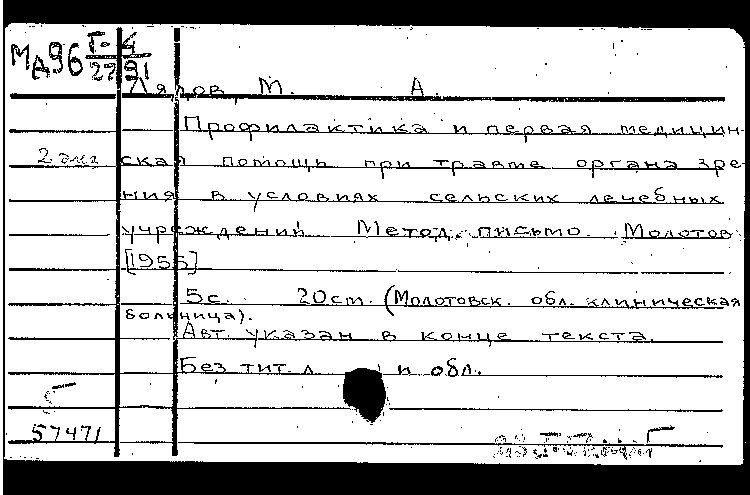 МД96 Г-4/2791
Лядов, М. А.
Профилактика и первая медицин-
2 экз ская помощь при травме органа зре-
ния в условиях сельских лечебных
учреждений. Метод. письмо. Молотов
[1955]
5с. 20cm. (Молотовск. обл. клиническая
больница).
Авт. указан в конце текста.
Без тит. л. и обл.
57471